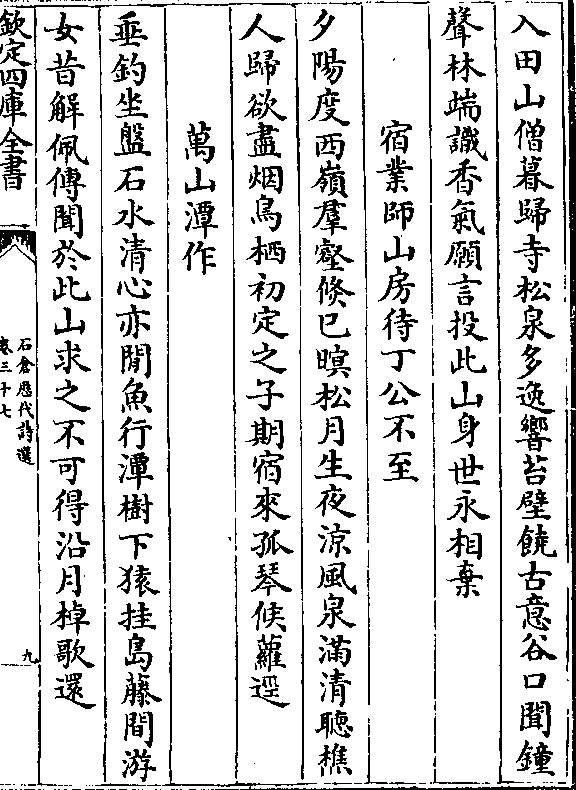 入田山僧暮歸寺松泉多逸響苔壁饒古意谷口聞鐘
聲林端識香氣願言投此山身世永相棄
宿業師山房待丁公不至
夕陽度西嶺羣壑倐已暝松月生夜涼風泉滿清聽樵
人歸欲盡烟鳥栖初定之子期宿來孤琴候蘿逕
萬山潭作
垂釣坐盤石水清心亦閒魚行潭樹下猿挂島藤間游
女昔解佩傳聞於此山求之不可得沿月棹歌還
欽定四庫全書
石倉歷代詩選
卷三十七
九